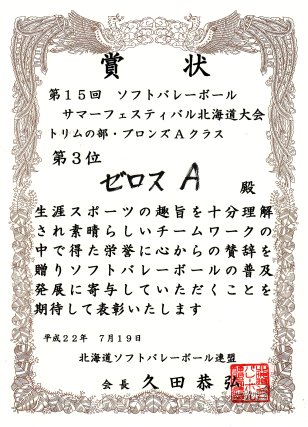 賞状
第15回 ソフトバレーボール
サマーフェスティバル北海道大会
トリムの部・ブロンズAクラス
第3位
ゼロス A 殿
生涯スポーツの趣旨を十分理解
され素晴らしいチームワークの
中で得た栄誉に心からの賛辞を
贈りソフトバレーボールの普及
発展に寄与していただくことを
期待して表彰いたします
平成22年 7月19日
北海道ソフトバレーボール連盟
会長 久田恭弘